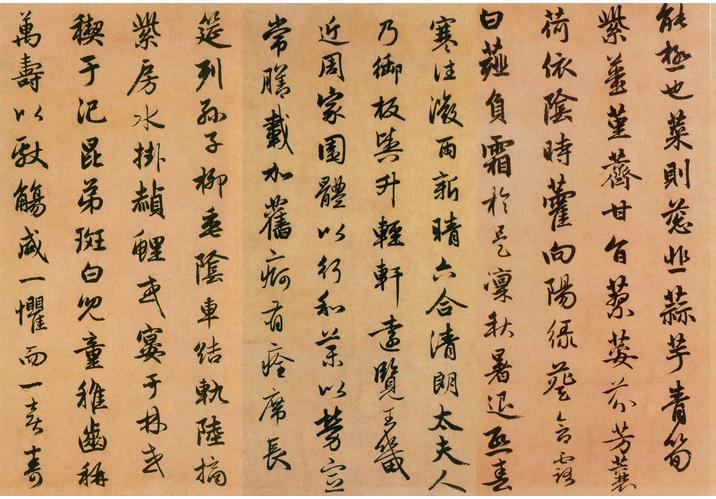 能極也菜則葱韭蒜芋青筍
紫薑堇薺甘旨蓼荾芬芳蘘
荷依陰時藿向陽綠葵含露
白薤負霜於是凜秋暑退熙春
寒往微雨新晴六合清朗太夫人
乃御板輿升輕軒遠覽王畿
近周家園體以行和藥以勞宣
常膳載加舊痾有痊席長
筵列孫子柳垂陰車結軌陸摘
紫房水掛赬鯉或宴于林或
禊于汜昆弟斑白兒童稚齒稱
萬壽以獻觴咸一懼而一喜壽